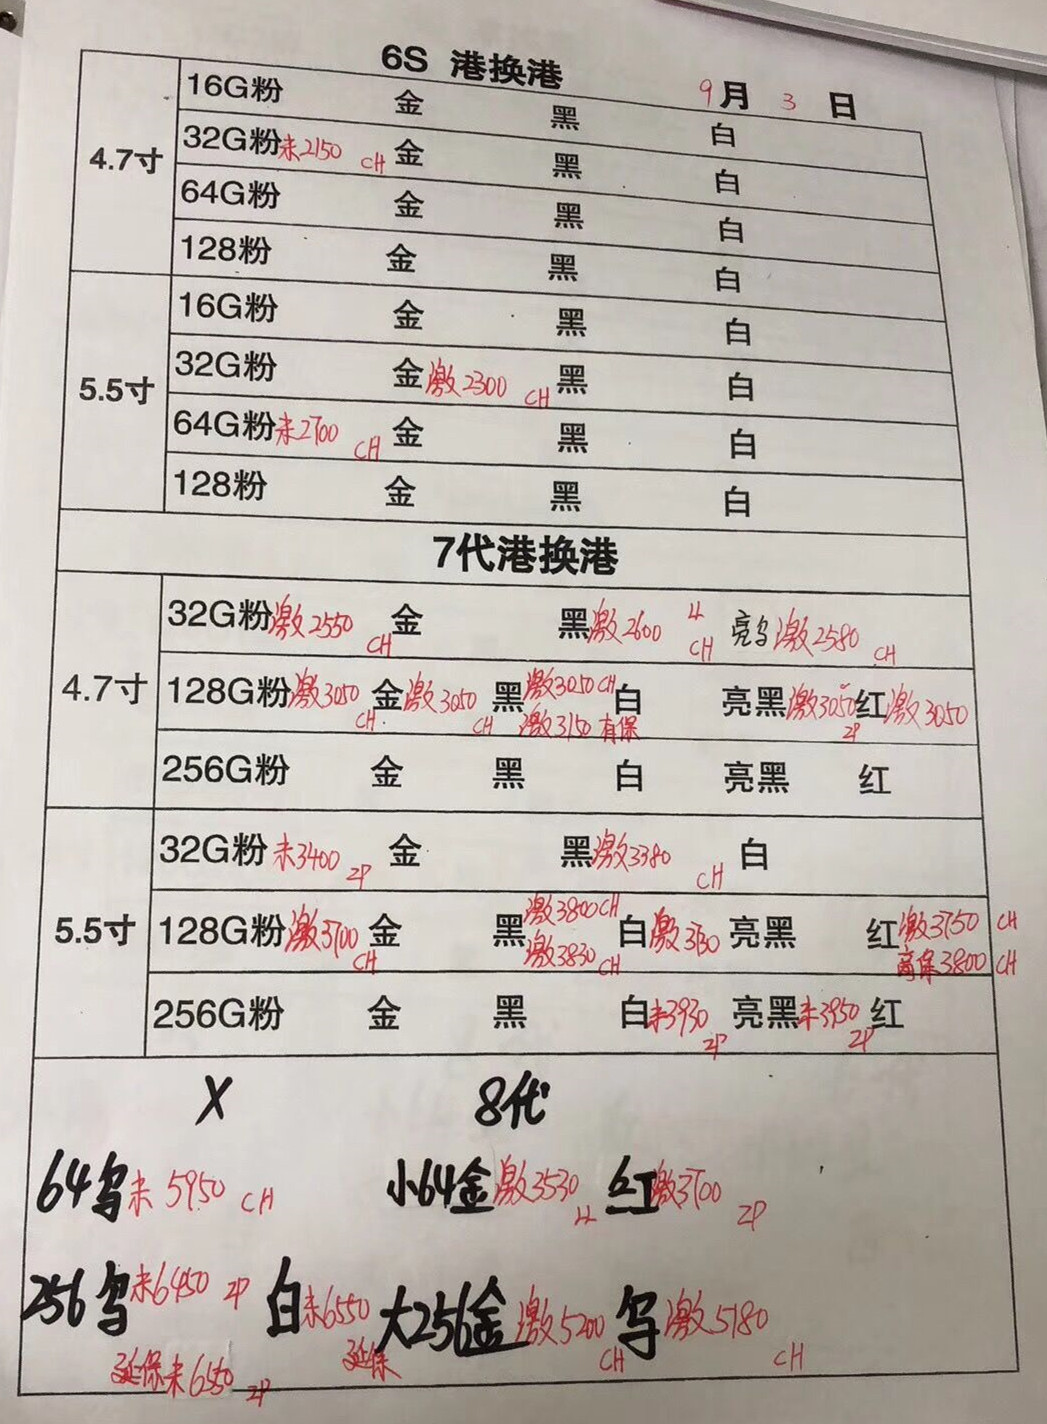 6S 港换港 9月 3 日
4.7寸
16G粉 金 黑 白
32G粉未2150 CH 金 黑 白
64G粉 金 黑 白
128粉 金 黑 白
5.5寸
16G粉 金 黑 白
32G粉 金激2300 CH 黑 白
64G粉未2700 CH 金 黑 白
128粉 金 黑 白
7代港换港
4.7寸
32G粉激2550 CH 金 黑激2600 LL CH 亮乌激2580 CH
128G粉激3050 CH 金激3050 CH 黑激3050CH 激3150有保 白 亮黑激3050 ZP 红激3050
256G粉 金 黑 白 亮黑 红
5.5寸
32G粉未3400 ZP 金 黑激3380 CH 白
128G粉激3700 CH 金 黑激3800CH 激3830CH 白激3730 亮黑 红激3750 CH 高保3800 CH
256G粉 金 黑 白未3930 ZP 亮黑未3950 ZP 红
X 8代
64乌未5950 CH 小64金激3530 LL 红激3700 ZP
256乌未6450 ZP 白未6550 延保 大256金激5200 CH 乌激5180 CH
延保未6550 ZP